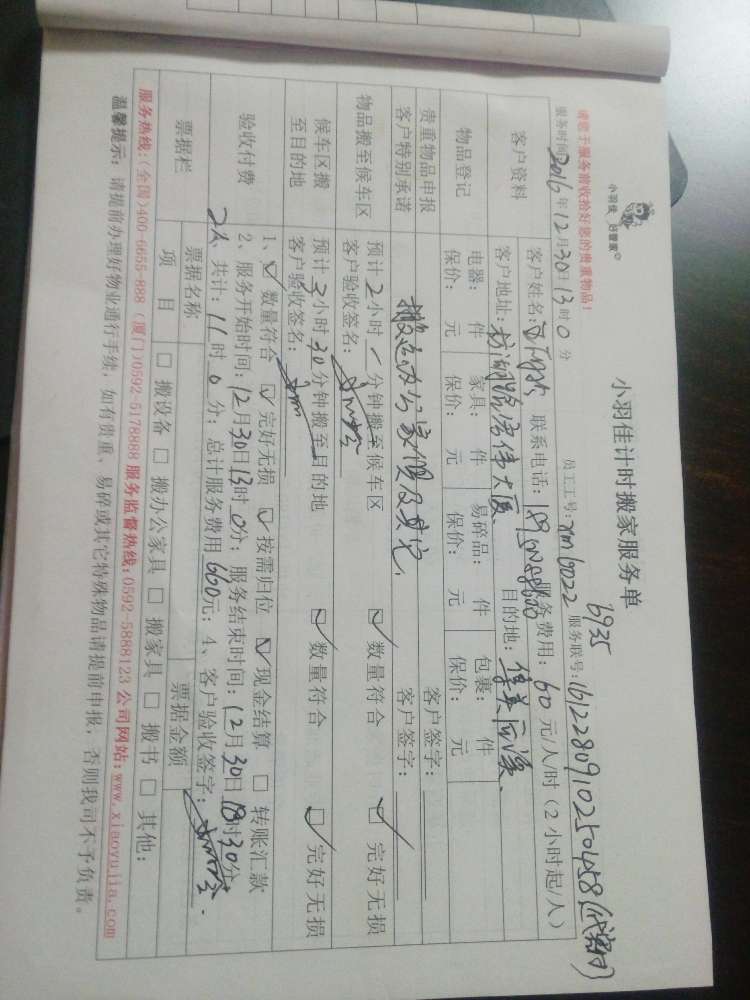 小羽佳 好管家
小羽佳计时搬家服务单
请您于服务前收拾好您的贵重物品！
6935
服务时间 2016年12月30日13时0分 员工工号：xm6022 服务联号：
客户资料
客户姓名： 联系电话： 服务费用：60元/人/时（2小时起/人）
客户地址： 目的地：
物品登记
电器： 件 家具： 件 易碎品： 件 包裹： 件
保价： 元 保价： 元 保价： 元 保价： 元
贵重物品申报 客户签字：
客户特别承诺 搬运办公家俱及其它、 客户签字：
物品搬至候车区
预计2小时 分钟搬至候车区 ☑ 数量符合 ☑ 完好无损
客户验收签名：
候车区搬至目的地
预计3小时30分钟搬至目的地 ☑ 数量符合 ☑ 完好无损
客户验收签名：
验收付费
1、☑ 数量符合 ☑ 完好无损 ☑ 按需归位 ☑ 现金结算 □ 转账汇款
2、服务开始时间：12月30日13时0分；服务结束时间：12月30日18时30分
2人、共计：11时0分；总计服务费用660元；4、客户验收签字：
票据栏
票据名称 票据金额
项目 □ 搬设备 □ 搬办公家具 □ 搬家具 □ 搬书 □ 其他：
服务热线：(全国)400-6655-888 (厦门)0592-5178888 服务监督热线：0592-5888123 公司网站：www.xiaoyujia.com
温馨提示：请提前办理好物业通行手续，如有贵重、易碎或其它特殊物品请提前申报，否则我司不予负责。